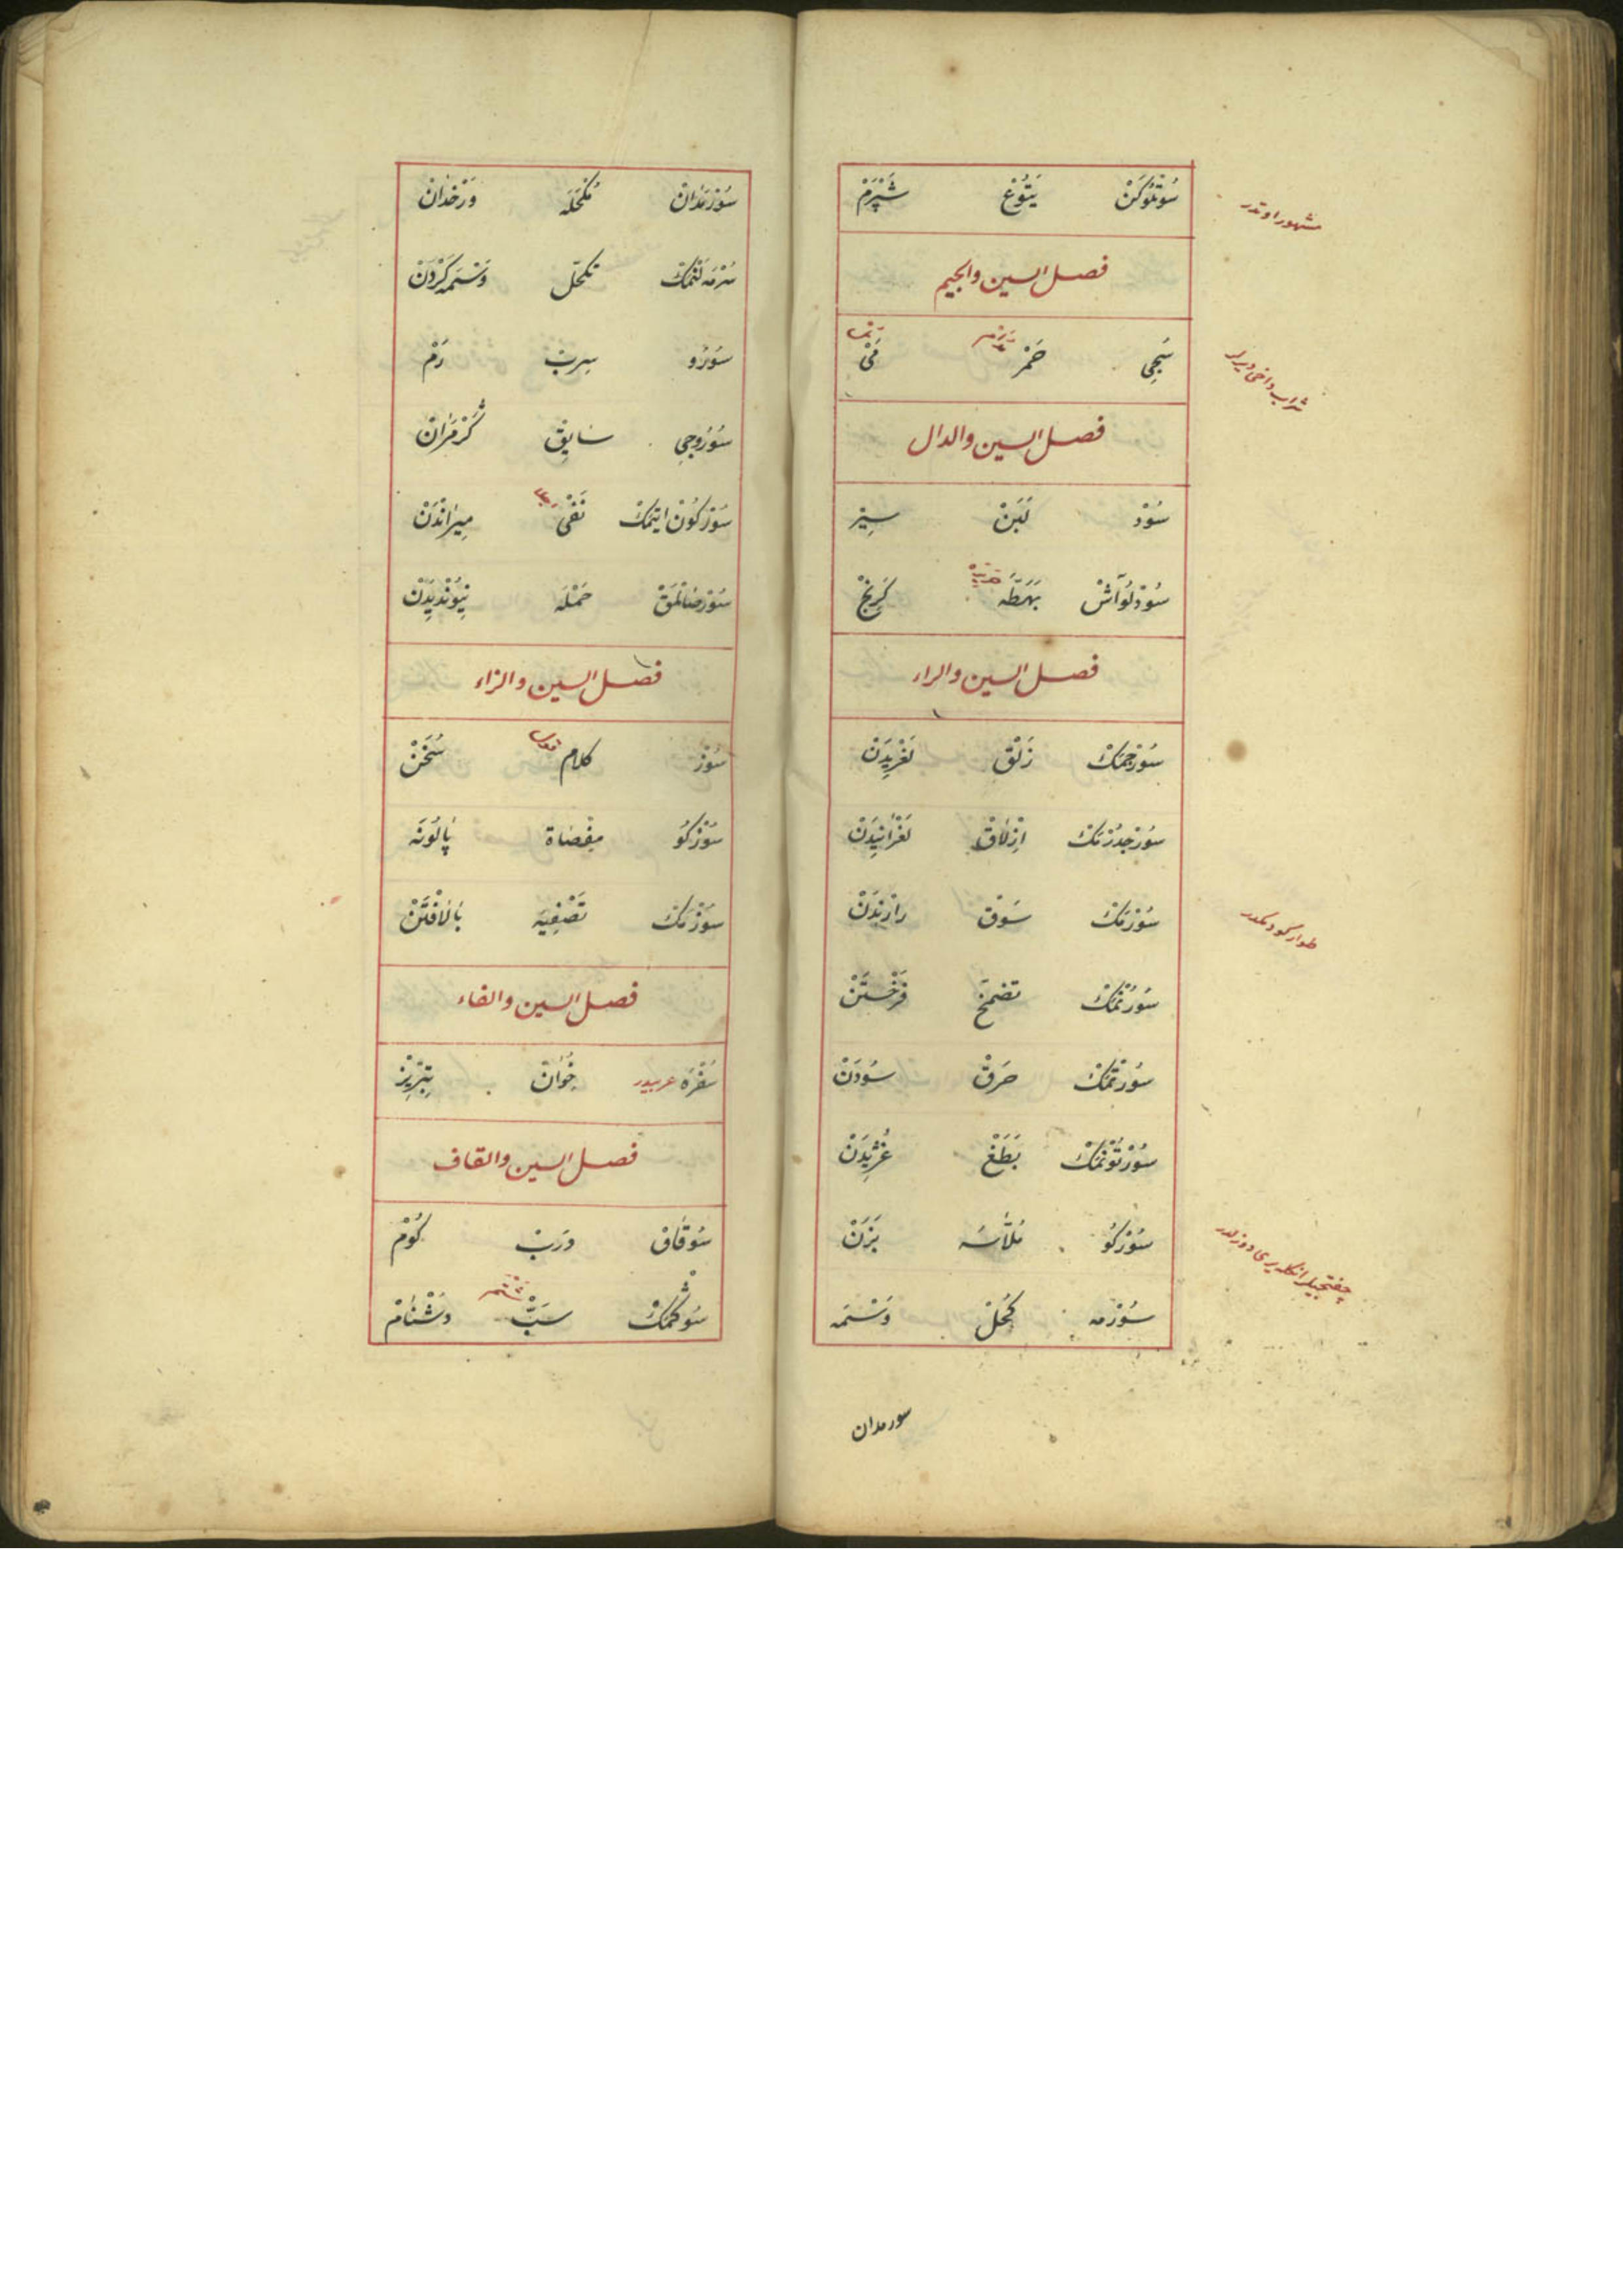 سُوتْلُوكَنْ يَتُوْعْ شَپْرَمْ
مشهور اوتدر
فصل السين والجيم
سُجِى خَمْر مَىْ
شراب داخى ديرلر
فصل السين والدال
سُوْدْ لَبَنْ سِيْر
سُوْدْلُوآشْ بَهَطَّه كَرِنْجْ
فصل السين والراء
سُوْرْجمَكْ زَلْق لَغْزِيدَنْ
سُوْرْجدُرْمَكْ اِزْلَاقْ لَغْزَانِيدَنْ
سُوْرْمَكْ سَوْق رانْدَنْ
طوار سورمكدر
سُورُنْمَكْ تضمّخ فَرْخَسْتَنْ
سُورتْمَكْ حَرقْ سُودَنْ
سُوْرْتُوْنْمَكْ بَطَغْ غِژِيدَنْ
سُوْرْكُو مَلَّاسَه بَزَنْ
سُوْرْمه كُحْلْ وَسْمَه
سورمدان
سُوْرْمَدَانْ مُكْحُلَه وَرْخَدَانْ
سُرْمَه لَنْمَكْ تكحّل وَسْمَه كَرْدَنْ
سُوْرُو سِربْ رَمْ
سُوْرُوجى سَايِقْ
سُوْرْكُونْ ايتْمَكْ نَفْى مِيرَانْدَنْ
سُوْرْصَالْمَقْ حَمْلَه نِيُونْدِيدَنْ
فصل السين والزاء
سُوْزْ كلام سُخَنْ
سُوْزْكُو مِصْفَاة پَالُونَه
سُوْزْمَكْ تَصْفِيَه پَالَافْتَنْ
فصل السين والفاء
سُفْرَه عربيدر خِوَانْ تِبْرِيزْ
فصل السين والقاف
سُوقَاقْ دَربْ كُوْمْ
سُوكْمَكْ سَبّْ دُشْنَامْ